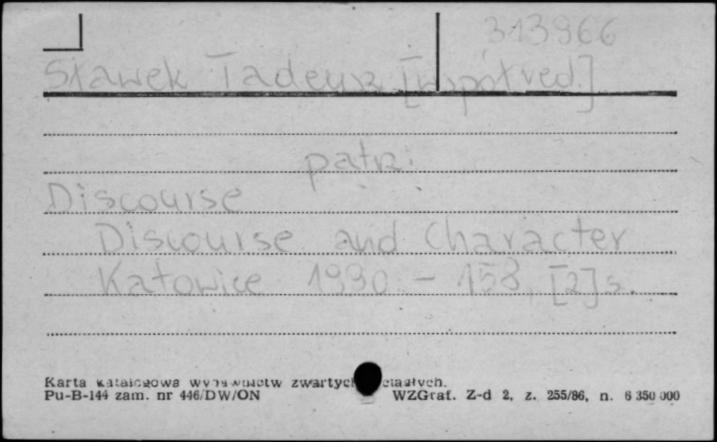 313966
Sławek Tadeusz [współred.]
patrz:
Discourse
Discourse and Character
Katowice 1990. – 158, [2] s.
Karta katalogowa wydawnictw zwartych ciągłych.
Pu-B-144 zam. nr 446/DW/ON WZGraf. Z-d 2, z. 255/86, n. 6 350 000